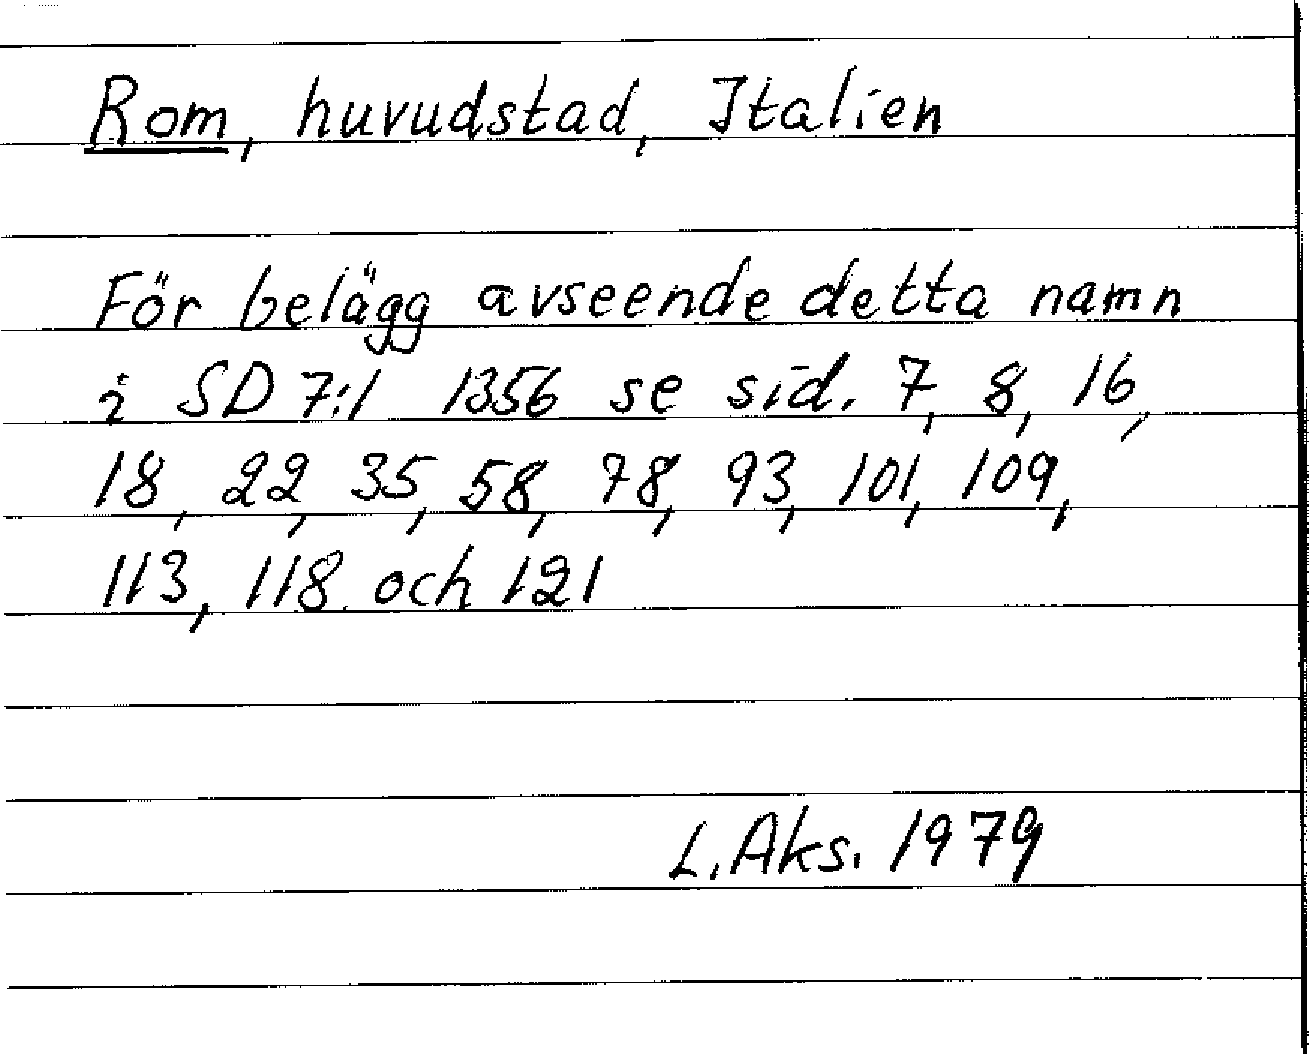 Rom, huvudstad, Italien
För belägg avseende detta namn
i SD 7:1 1356 se sid. 7, 8, 16,
18, 22, 35, 58, 78, 93, 101, 109,
113, 118 och 121
L. Aks. 1979